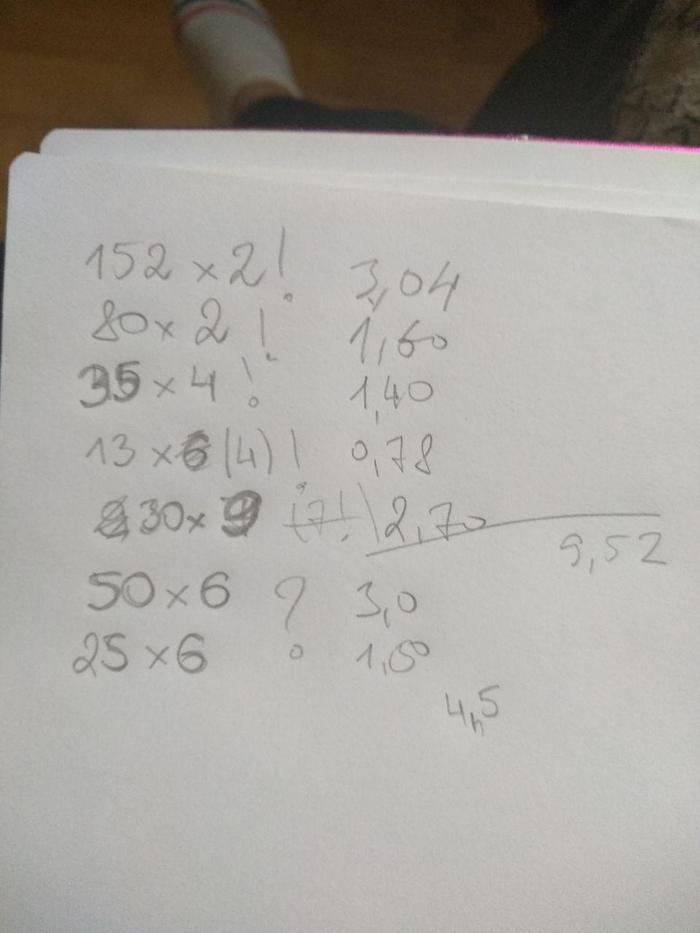 152 × 2 ! 3,04
80 × 2 ! 1,60
35 × 4 ! 1,40
13 × 6 (4) ! 0,78
30 × 9 (7!) 2,70
9,52
50 × 6 ? 3,0
25 × 6 1,50
4,5